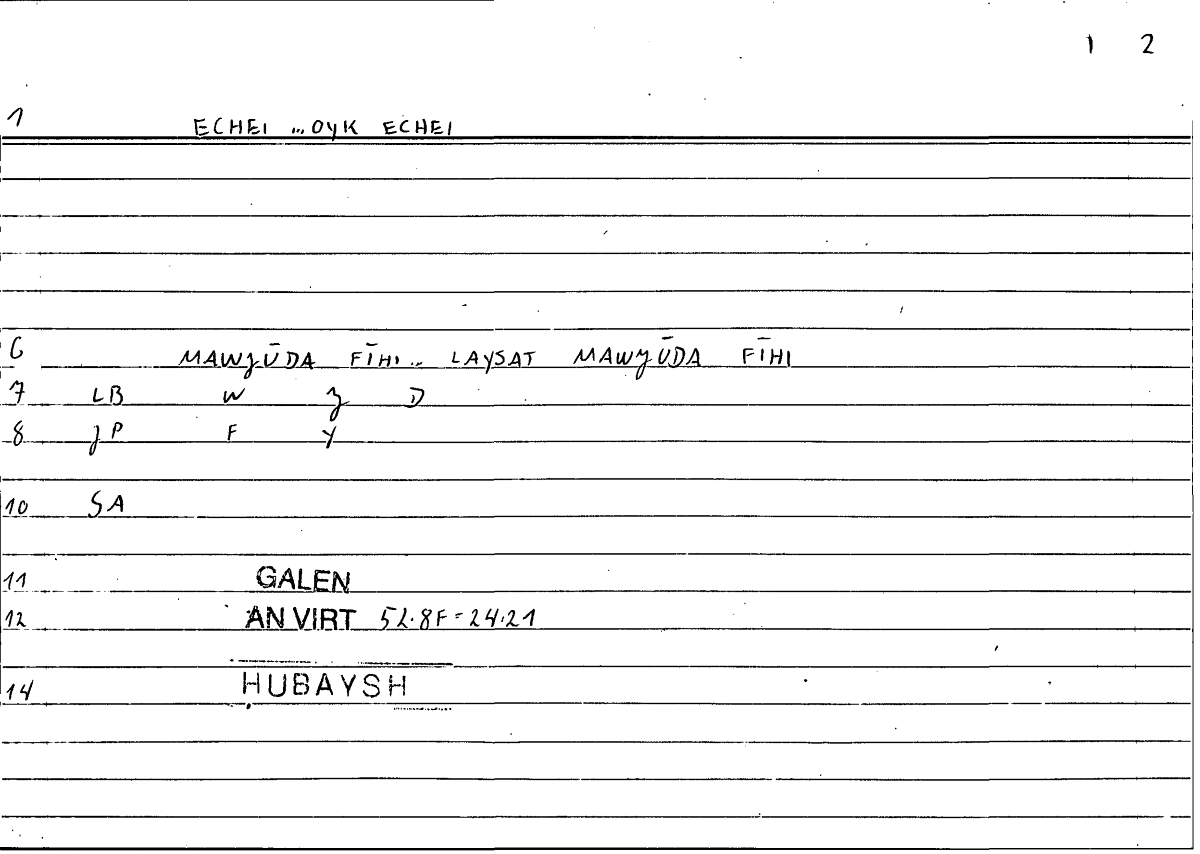 1 2
1 ECHEI ... OYK ECHEI
6 MAWJŪDA FĪHI .. LAYSAT MAWJŪDA FĪHI
7 LB W J D
8 JP F Y
10 SA
11 GALEN
12 AN VIRT 52.8F=24.21
14 ḤUBAYSH